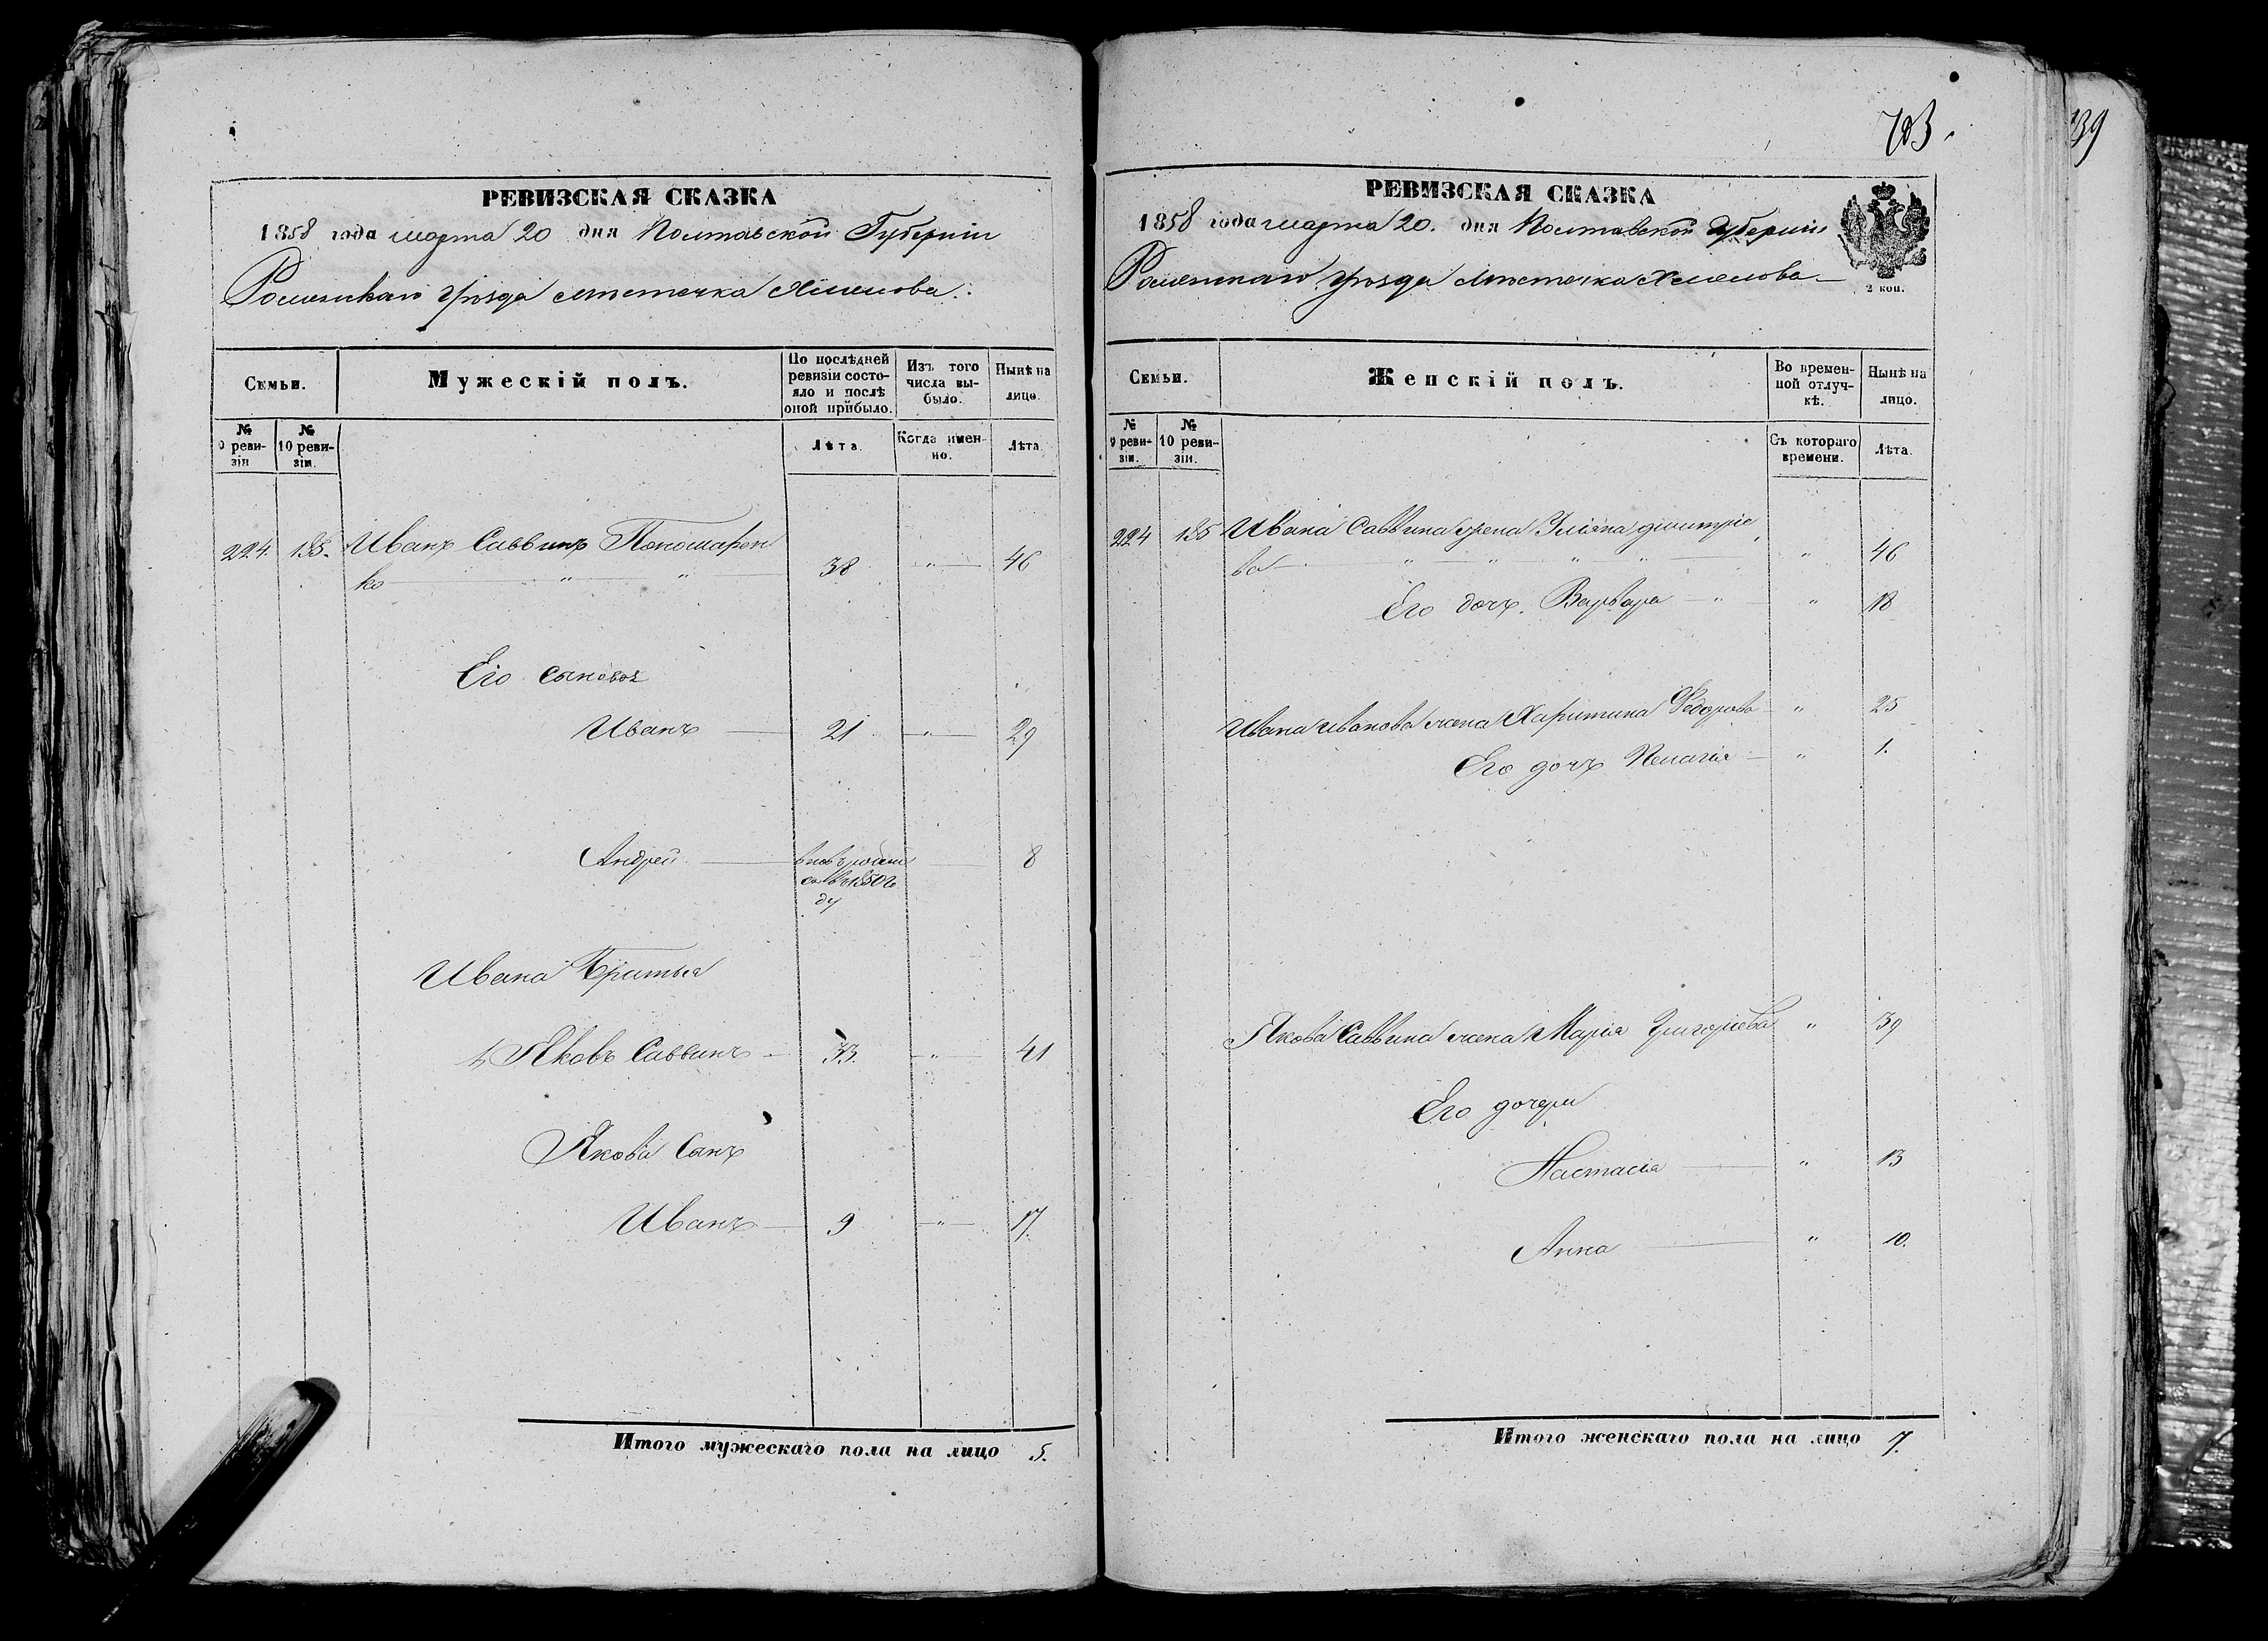 РЕВИЗСКАЯ СКАЗКА
1858 года марта 20 дня Полтавской Губерніи
Роменскаго уѣзда мѣстечка Хмелова.
Семьи.
Мужескій полъ.
По послѣдней ревизіи состояло и послѣ оной прибыло.
Изъ того числа выбыло.
Нынѣ на лицо.
№ 9 ревизіи
№ 10 ревизіи.
Лѣта.
Когда именно.
Лѣта.
224. 185. Иванъ Саввинъ Пономарен
ко — " — " — 38 — " — 46
Его сыновья
Иванъ — 21 — " — 29
Андрей — вновь родил — 8
ся въ 1850 го
ду
Ивана Братья
1, Яковъ Саввинъ — 33. — " — 41
Якова Сынъ
Иванъ — 9 — " — 17.
Итого мужескаго пола на лицо 5.
703.
РЕВИЗСКАЯ СКАЗКА
1858 года марта 20. дня Полтавской Губерніи
Роменскаго уѣзда мѣстечка Хмелова —
2 коп.
Семьи.
Женскій полъ.
Во временной отлучкѣ.
Нынѣ на лицо.
№ 9 ревизіи.
№ 10 ревизіи.
Съ котораго времени.
Лѣта.
224 185 Ивана Саввина жена Уліяна Димитріе
ва — " — " — " — " — " 46
Его дочь Варвара — " — " 18
Ивана Иванова жена Харитина Федорова — " 25
Его дочь Пелагія — " 1.
Якова Саввина жена Марія Григоріева " 39
Его дочери
Настасія — " 13
Анна — " 10.
Итого женскаго пола на лицо 7.
39